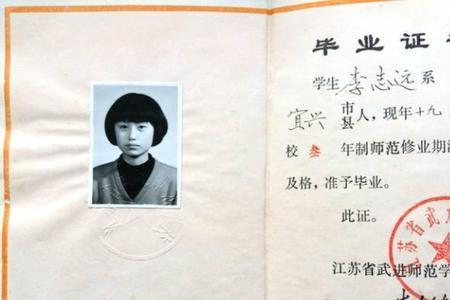 毕业证
学生 李志远 系
宜兴 市县 人，现年十九
校 叁 年制师范修业期
及格，准予毕业。
此证。
江苏省武进师范学
江苏省武